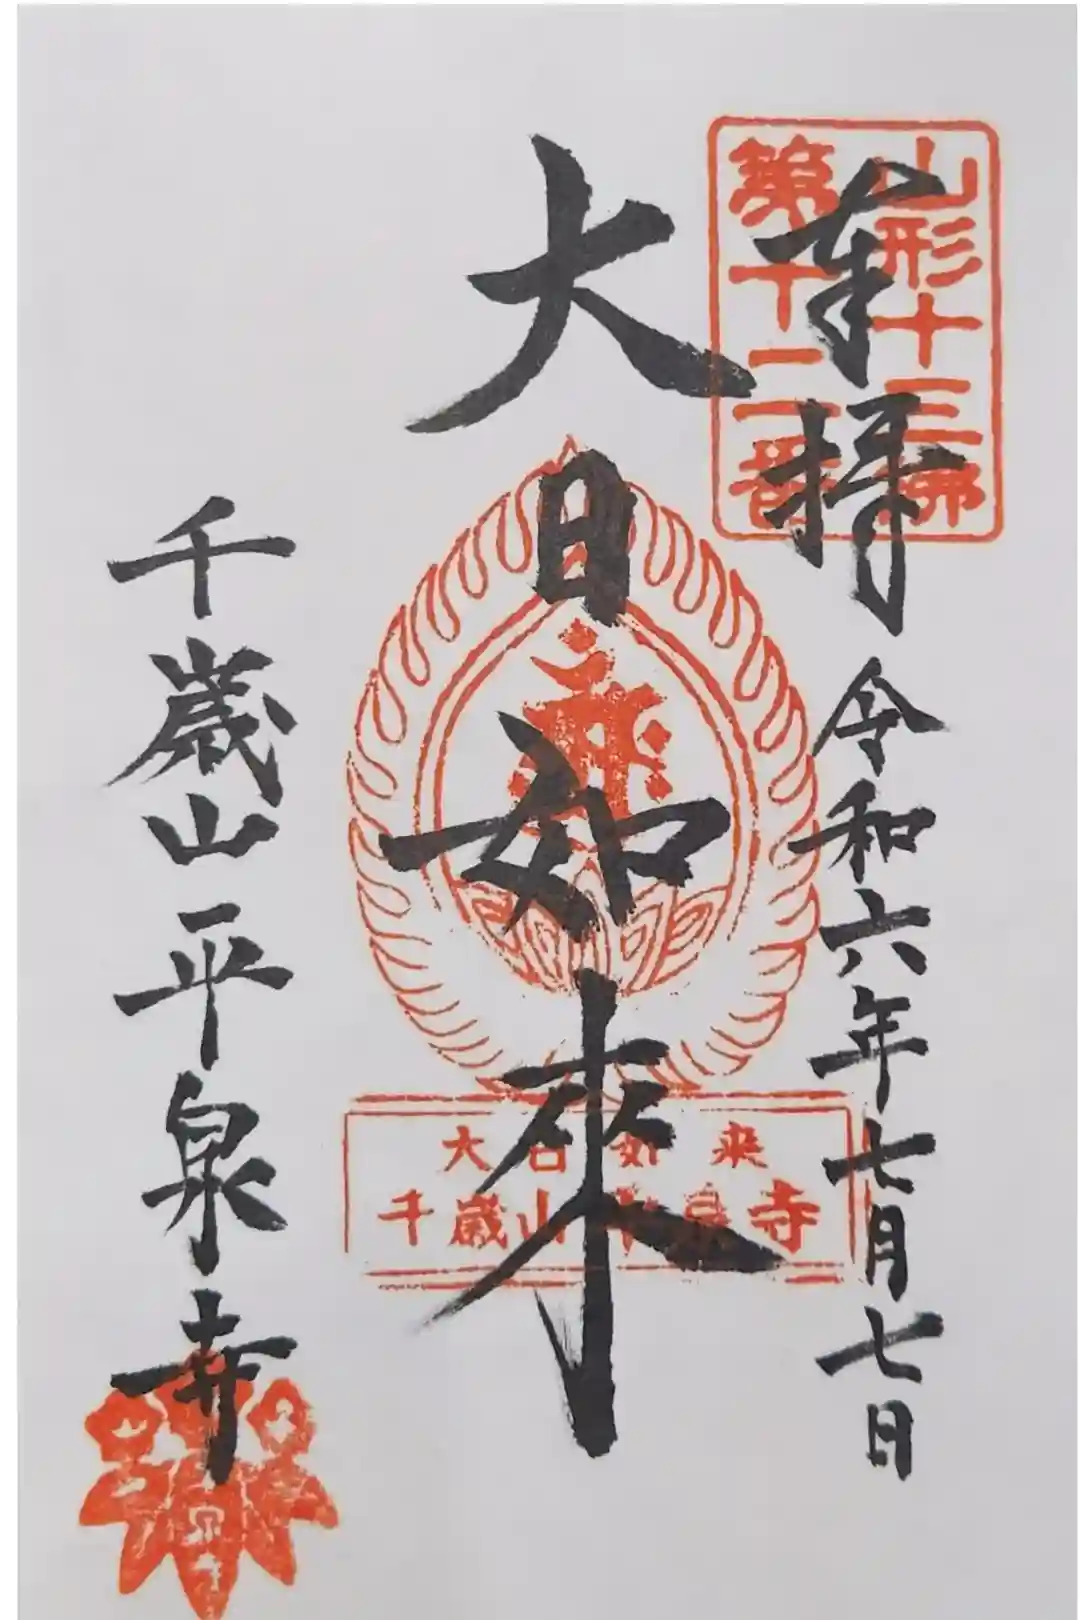 奉拝
令和六年七月七日
山形十三佛
第十二番
大日如来
大日如来
千歳山平泉寺
千歳山平泉寺